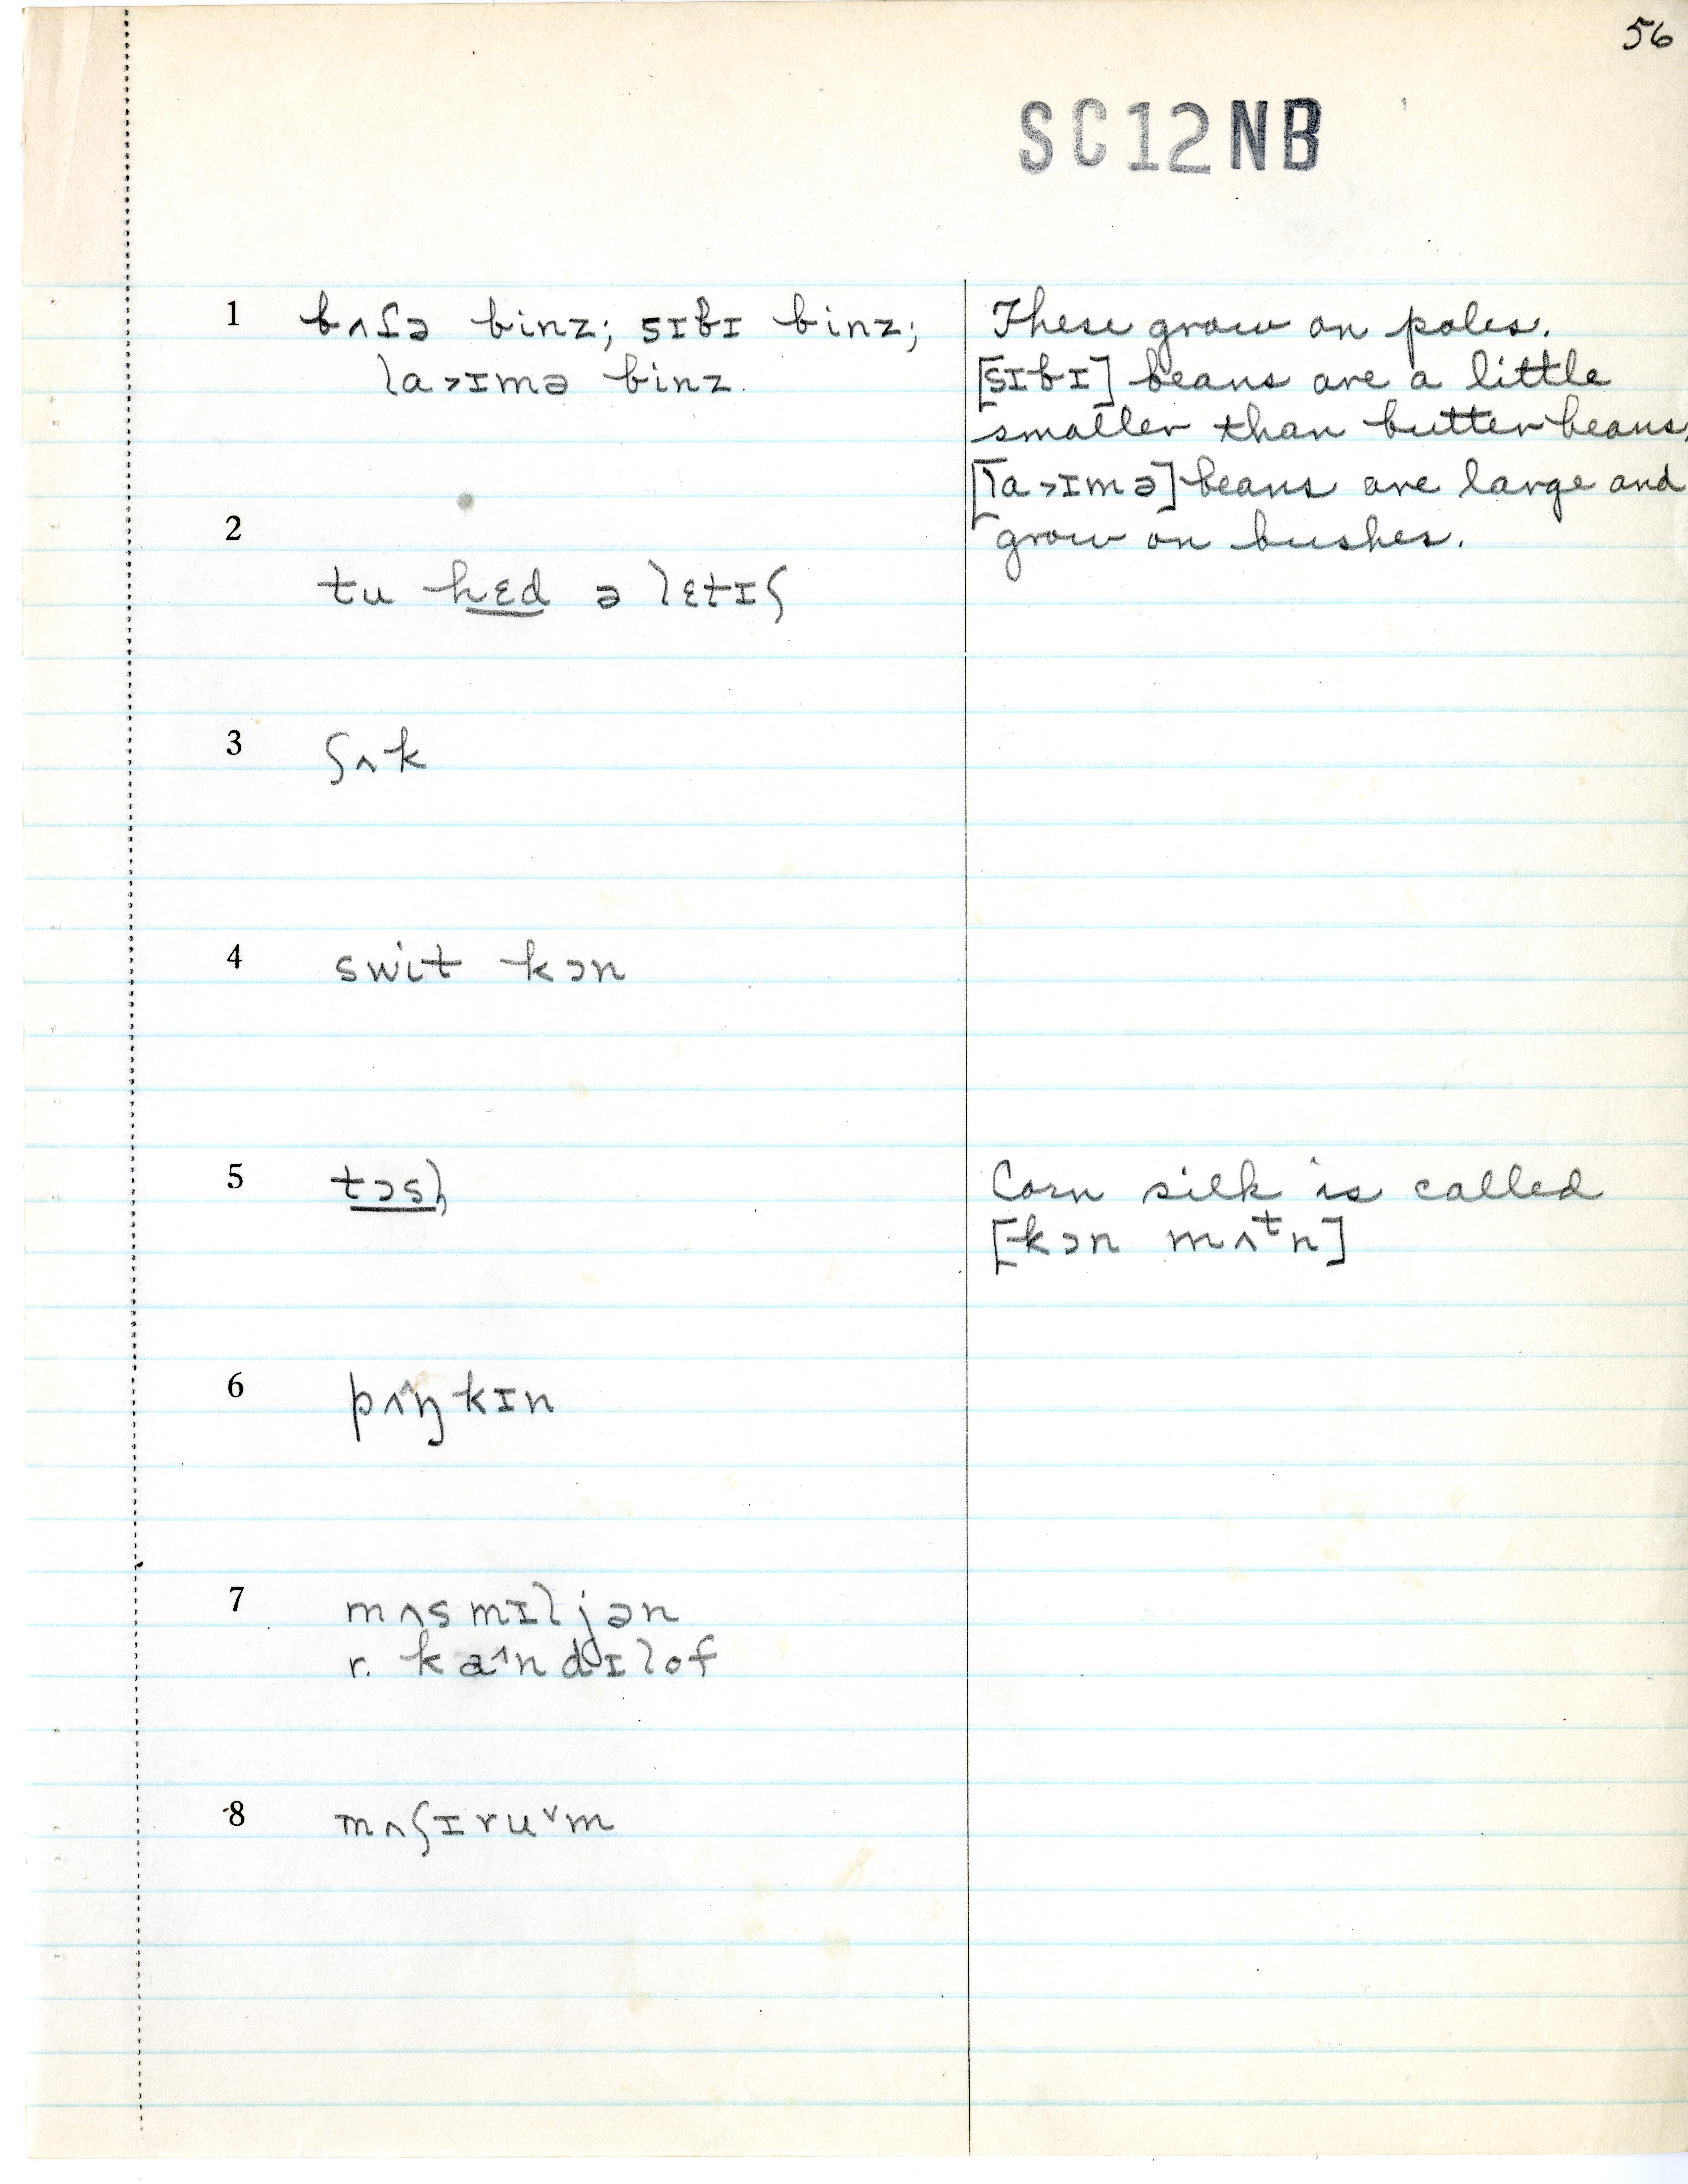 56
SC12NB
1 bʌɾə binz; sɪbɪ binz;
la˃ɪmə binz.
These grow on poles.
[sɪbɪ] beans are a little
smaller than butterbeans.
[la˃ɪmə] beans are large and
grow on bushes.
2
tu hɛd ə lɛtɪʃ
3 ʃʌk
4 swit kɔn
5 tɔsl̩
Corn silk is called
[kɔn mʌᵗn]
6 pʌ˄ŋkɪn
7 mʌsmɪljən
r. ka˄ndɪlof
8 mʌʃɪru˅m